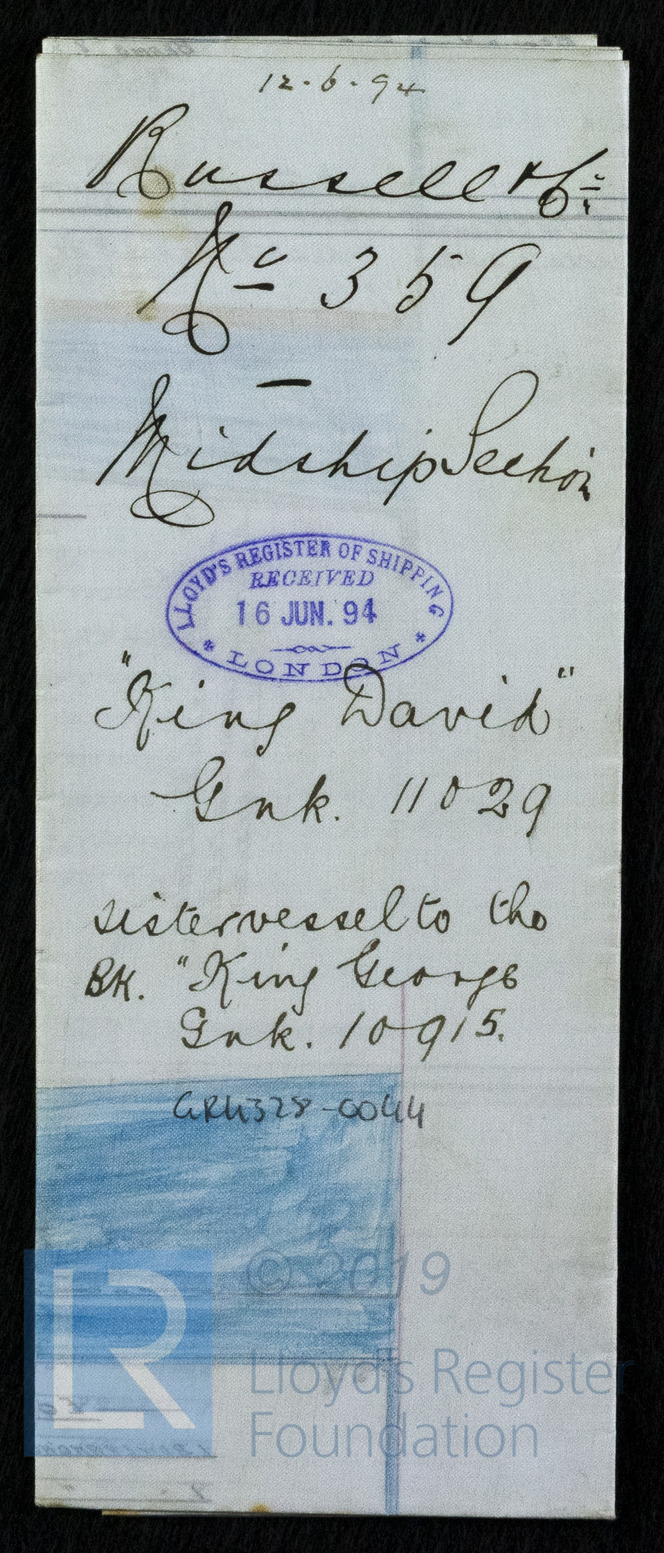 12·6·94
Russell & Co
No 359
Midship Section
LLOYD'S REGISTER OF SHIPPING
RECEIVED
16 JUN. 94
LONDON
"King David"
Gnk. 11029
sister vessel to the
BK. "King George
Gnk. 10915.
GRK328-0044
© 2019
LR
Lloyd's Register
Foundation